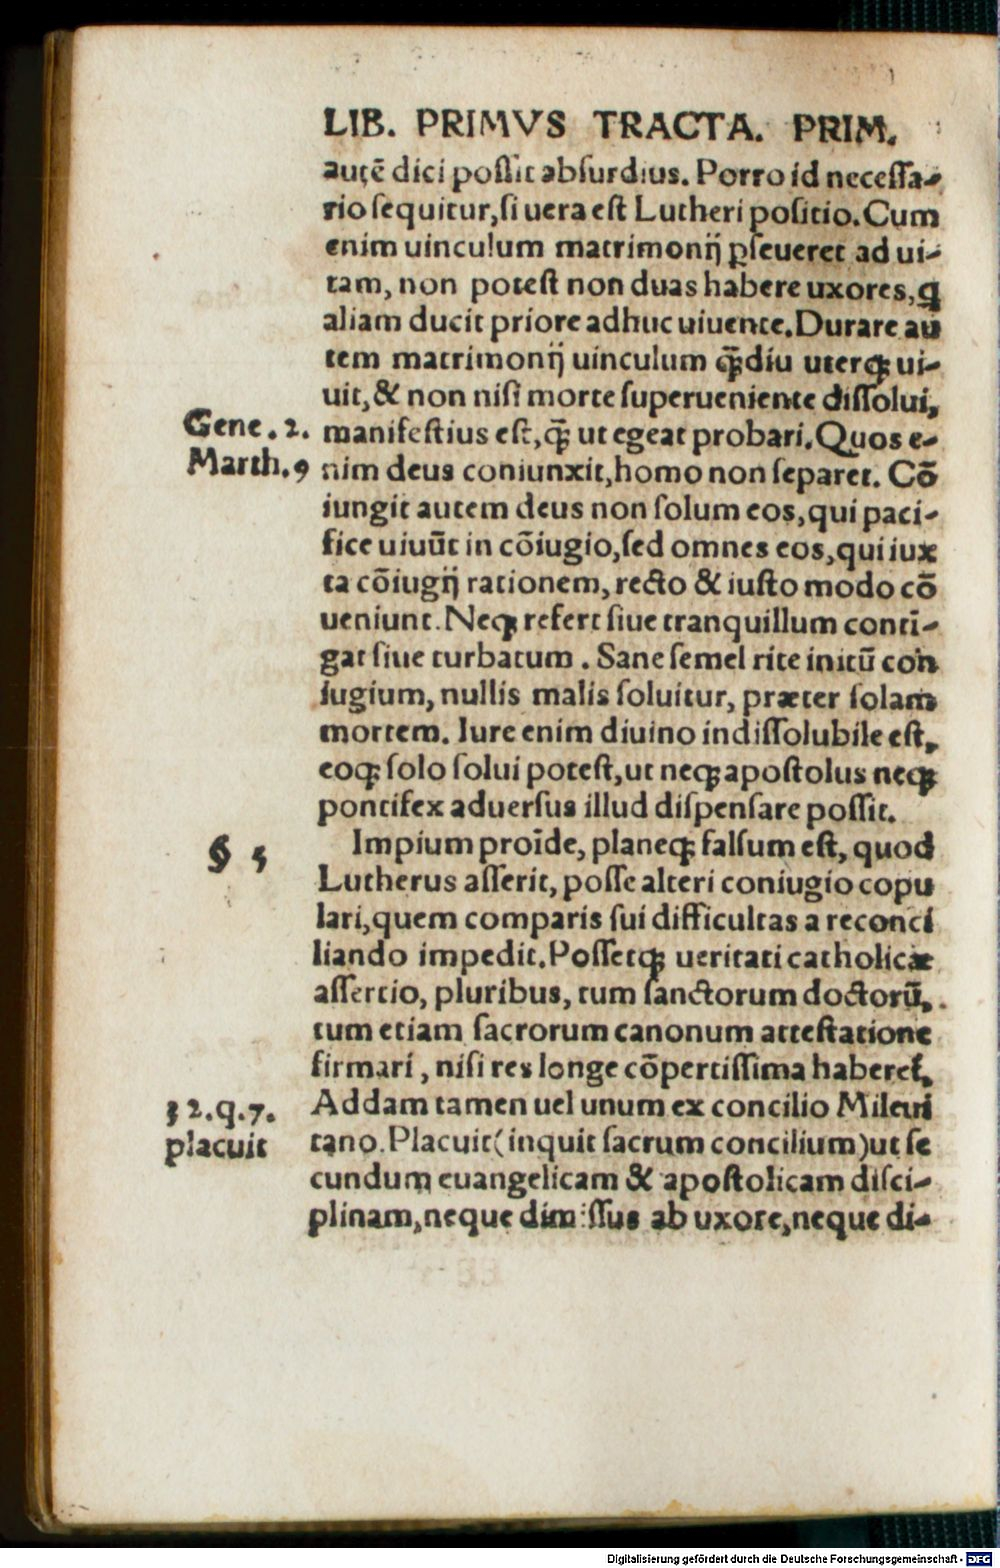 LIB. PRIMVS TRACTA. PRIM.
autē dici poſſit abſurdius. Porro id neceſſa-
rio ſequitur, ſi uera eſt Lutheri poſitio. Cum
enim uinculum matrimonij ꝑſeueret ad ui-
tam, non poteſt non duas habere uxores, q
aliam ducit priore adhuc uiuente. Durare au
tem matrimonij uinculum q̄diu uterqꝫ ui-
uit, & non niſi morte ſuperueniente diſſolui,
Gene. 2. manifeſtius eſt, q̄ ut egeat probari. Quos e-
Matth. 9 nim deus coniunxit, homo non ſeparet. Cō
iungit autem deus non ſolum eos, qui paci-
fice uiuūt in cōiugio, ſed omnes eos, qui iux
ta cōiugij rationem, recto & iuſto modo cō
ueniunt. Neqꝫ refert ſiue tranquillum conti-
gat ſiue turbatum. Sane ſemel rite initū con
iugium, nullis malis ſoluitur, præter ſolam
mortem. Iure enim diuino indiſſolubile eſt,
eoqꝫ ſolo ſolui poteſt, ut neqꝫ apoſtolus neqꝫ
pontifex aduerſus illud diſpenſare poſſit.
§ 5 Impium proīde, planeqꝫ falſum eſt, quod
Lutherus aſſerit, poſſe alteri coniugio copu
lari, quem comparis ſui difficultas a reconci
liando impedit. Poſſetqꝫ ueritati catholicæ
aſſertio, pluribus, tum ſanctorum doctorū,
tum etiam ſacrorum canonum atteſtatione
firmari, niſi res longe cōpertiſſima haberet.
32. q. 7. Addam tamen uel unum ex concilio Mileui
placuit tano. Placuit (inquit ſacrum concilium) ut ſe
cundum euangelicam & apoſtolicam diſci-
plinam, neque dimiſſus ab uxore, neque di-
Digitalisierung gefördert durch die Deutsche Forschungsgemeinschaft - DFG